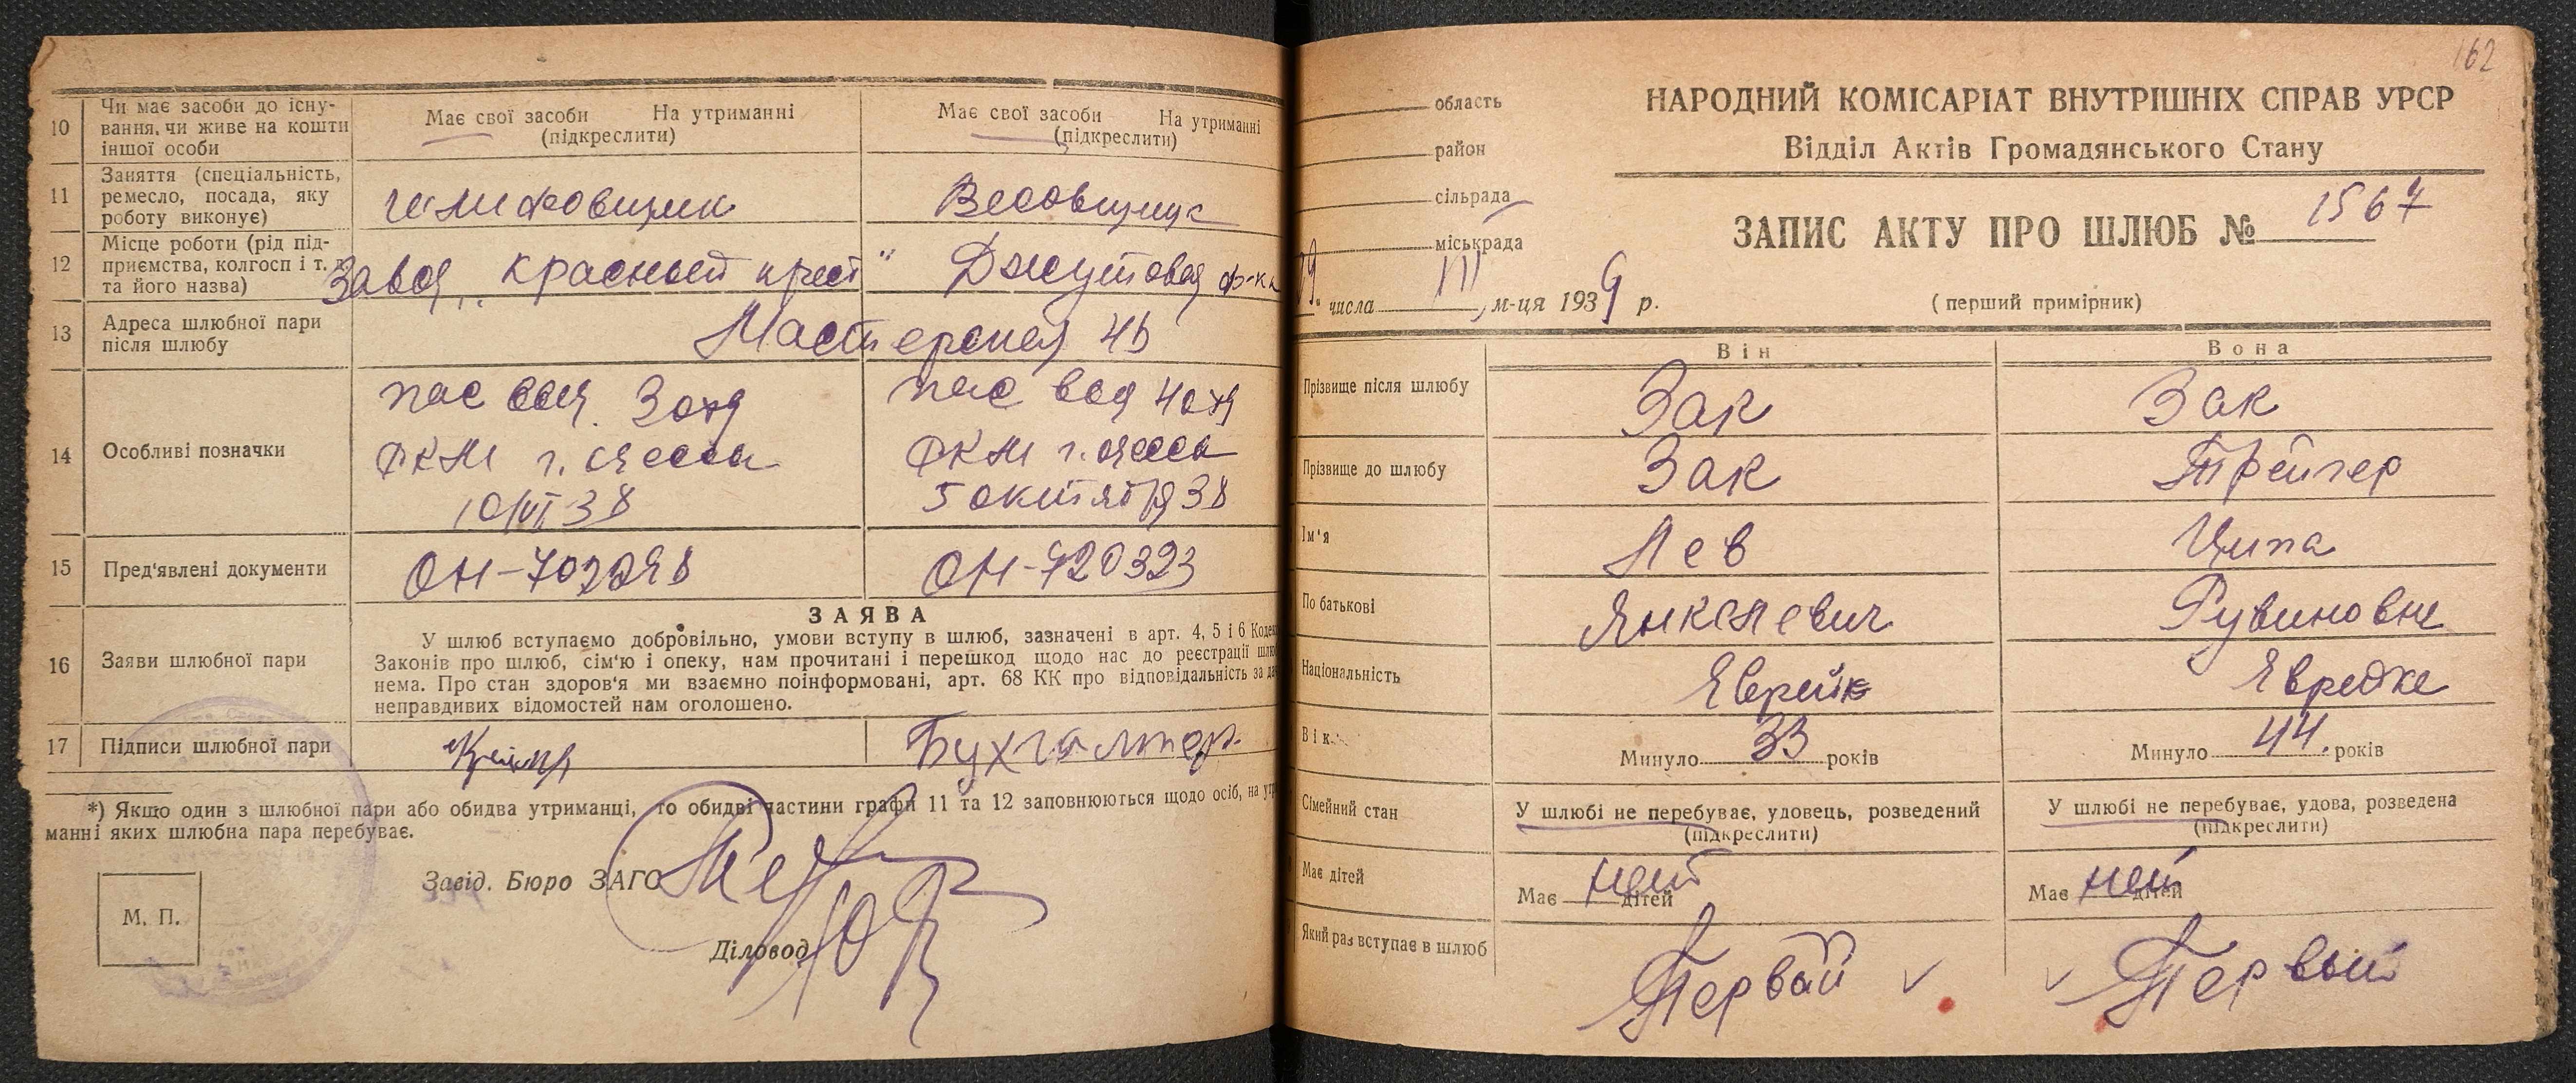 10 Чи має засоби до існу-
вання, чи живе на кошти
іншої особи
Має свої засоби На утриманні
(підкреслити)
Має свої засоби На утриманні
(підкреслити)
11 Заняття (спеціальність,
ремесло, посада, яку
роботу виконує)
шлифовщик
Весовщик
12 Місце роботи (рід під-
приємства, колгосп і т.
та його назва)
Завод „Красный крест"
Джутовая ф-ка
13 Адреса шлюбної пари
після шлюбу
Мастерская 4
14 Особливі позначки
пас выд. 3 отд
РКМ г. Одесса
10/VI 38
пас выд 4 отд
РКМ г. Одесса
5 октября 38
15 Пред'явлені документи
ОН-702298
ОН-720323
16 Заяви шлюбної пари
ЗАЯВА
У шлюб вступаємо добровільно, умови вступу в шлюб, зазначені в арт. 4, 5 і 6 Кодек
Законів про шлюб, сім'ю і опеку, нам прочитані і перешкод щодо нас до реєстрації шлю
нема. Про стан здоров'я ми взаємно поінформовані, арт. 68 КК про відповідальність за да
неправдивих відомостей нам оголошено.
17 Підписи шлюбної пари
Бухгалтер
*) Якщо один з шлюбної пари або обидва утриманці, то обидві частини графи 11 та 12 заповнюються щодо осіб, на утри
манні яких шлюбна пара перебуває.
Завід. Бюро ЗАГС
М. П.
Діловод
162
область
район
сільрада
міськрада
19 „ числа III м-ця 1939 р.
НАРОДНИЙ КОМІСАРІАТ ВНУТРІШНІХ СПРАВ УРСР
Відділ Актів Громадянського Стану
ЗАПИС АКТУ ПРО ШЛЮБ № 1567
(перший примірник)
Він Вона
Прізвище після шлюбу Зак Зак
Прізвище до шлюбу Зак Трейгер
Ім'я Лев Ципа
По батькові Янкелевич Рувиновне
Національність Еврей Еврейке
Вік Минуло 33 років Минуло 44 років
Сімейний стан У шлюбі не перебуває, удовець, розведений
(підкреслити)
У шлюбі не перебуває, удова, розведена
(підкреслити)
Має дітей Має нет дітей Має нет дітей
Який раз вступає в шлюб Первый Первый